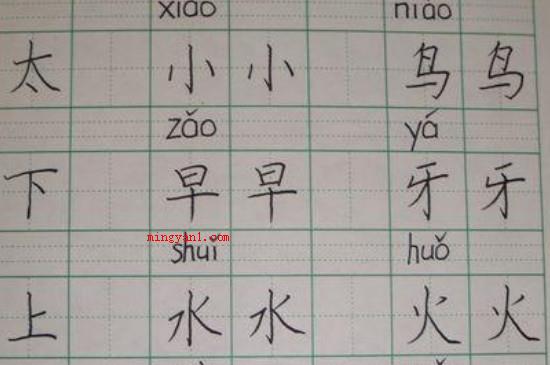 xiǎo niǎo
太 小 小 鸟 鸟
zǎo yá
下 早 早 牙 牙
mingyan1.com
shuǐ huǒ
上 水 水 火 火